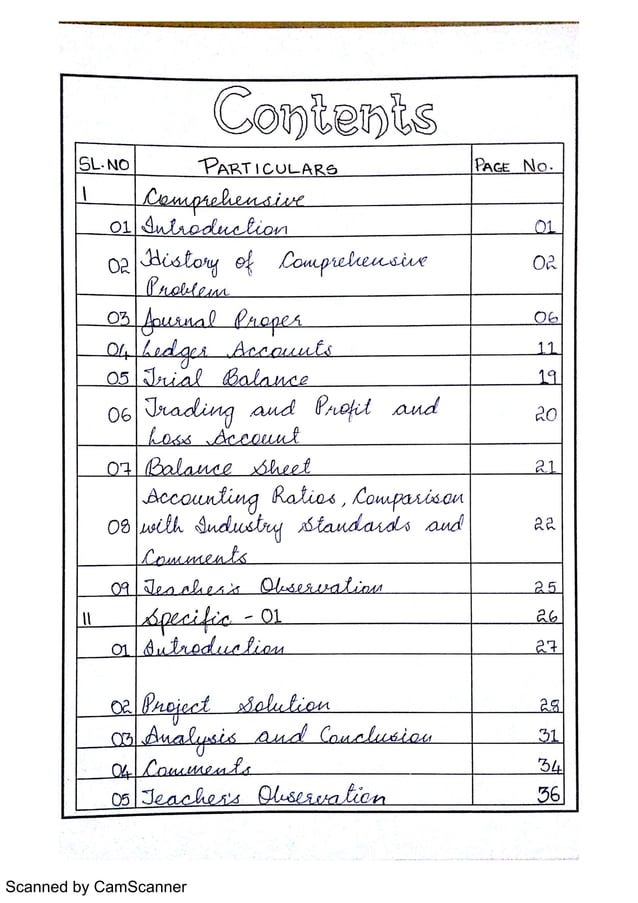 Contents
SL.NO PARTICULARS PAGE No.
I Comprehensive
01 Introduction 01
02 History of Comprehensive 02
Problem
03 Journal Proper 06
04 Ledger Accounts 11
05 Trial Balance 19
06 Trading and Profit and 20
Loss Account
07 Balance Sheet 21
Accounting Ratios, Comparison
08 with Industry Standards and 22
Comments
09 Teacher's Observation 25
II Specific - 01 26
01 Introduction 27
02 Project Solution 28
03 Analysis and Conclusion 31
04 Comments 34
05 Teacher's Observation 36
Scanned by CamScanner